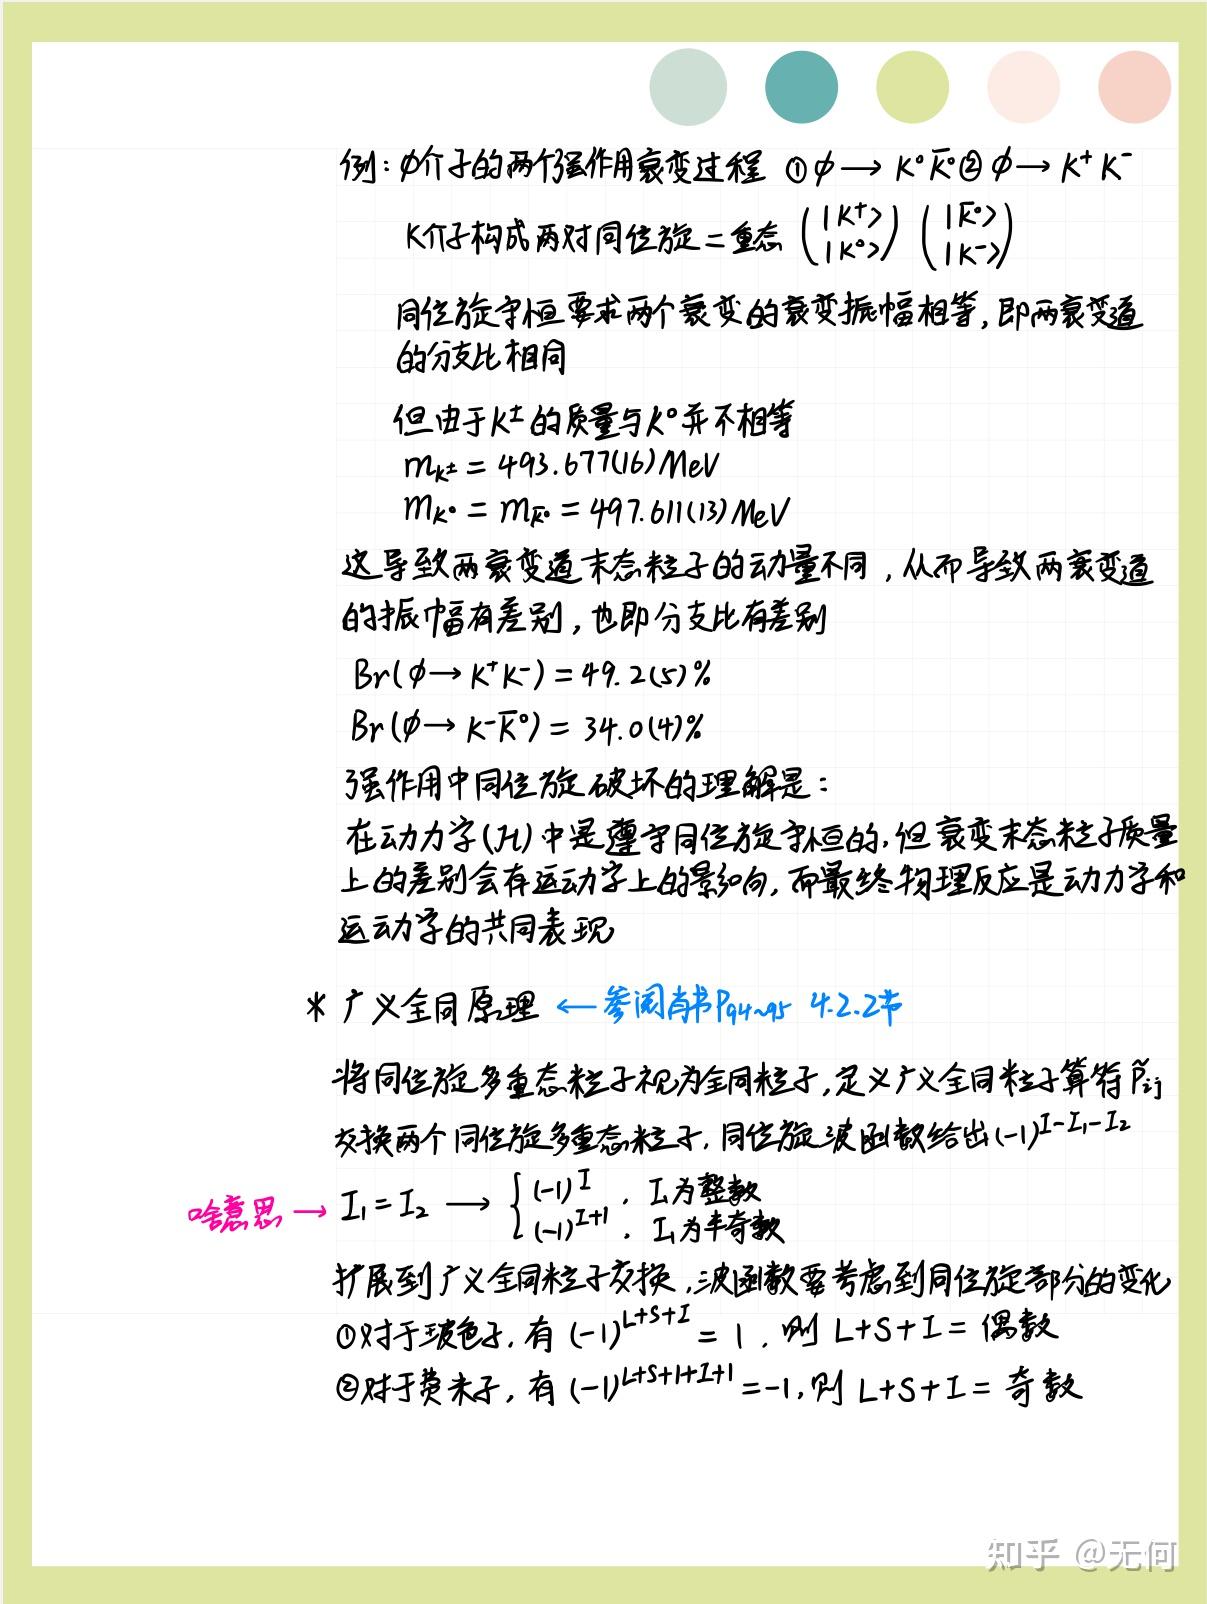 例：φ介子的两个强作用衰变过程 ①φ→K⁰K̅⁰②φ→K⁺K⁻
K介子构成两对同位旋二重态 (|K⁺> |K⁰>) (|K̅⁰> |K⁻>)
同位旋守恒要求两个衰变的衰变振幅相等，即两衰变道
的分支比相同
但由于K±的质量与K⁰并不相等
mK± = 493.677(16)MeV
mK⁰ = mK̅⁰ = 497.611(13)MeV
这导致两衰变道末态粒子的动量不同，从而导致两衰变道
的振幅有差别，也即分支比有差别
Br(φ→K⁺K⁻)=49.2(5)%
Br(φ→K⁻K̅⁰)=34.0(4)%
强作用中同位旋破坏的理解是：
在动力学(H)中是遵守同位旋守恒的，但衰变末态粒子质量
上的差别会有运动学上的影响，而最终物理反应是动力学和
运动学的共同表现
* 广义全同原理 ←参阅肖书P94~95 4.2.2节
将同位旋多重态粒子视为全同粒子，定义广义全同粒子算符P̃ij
交换两个同位旋多重态粒子，同位旋波函数给出(-1)^I-I₁-I₂
啥意思→ I₁=I₂ → { (-1)^I ，I₁为整数
(-1)^I+1 ，I₁为半奇数
扩展到广义全同粒子交换，波函数要考虑到同位旋部分的变化
①对于玻色子，有(-1)^L+S+I=1，则L+S+I=偶数
②对于费米子，有(-1)^L+S+1+I+1=-1，则L+S+I=奇数
知乎 @无何